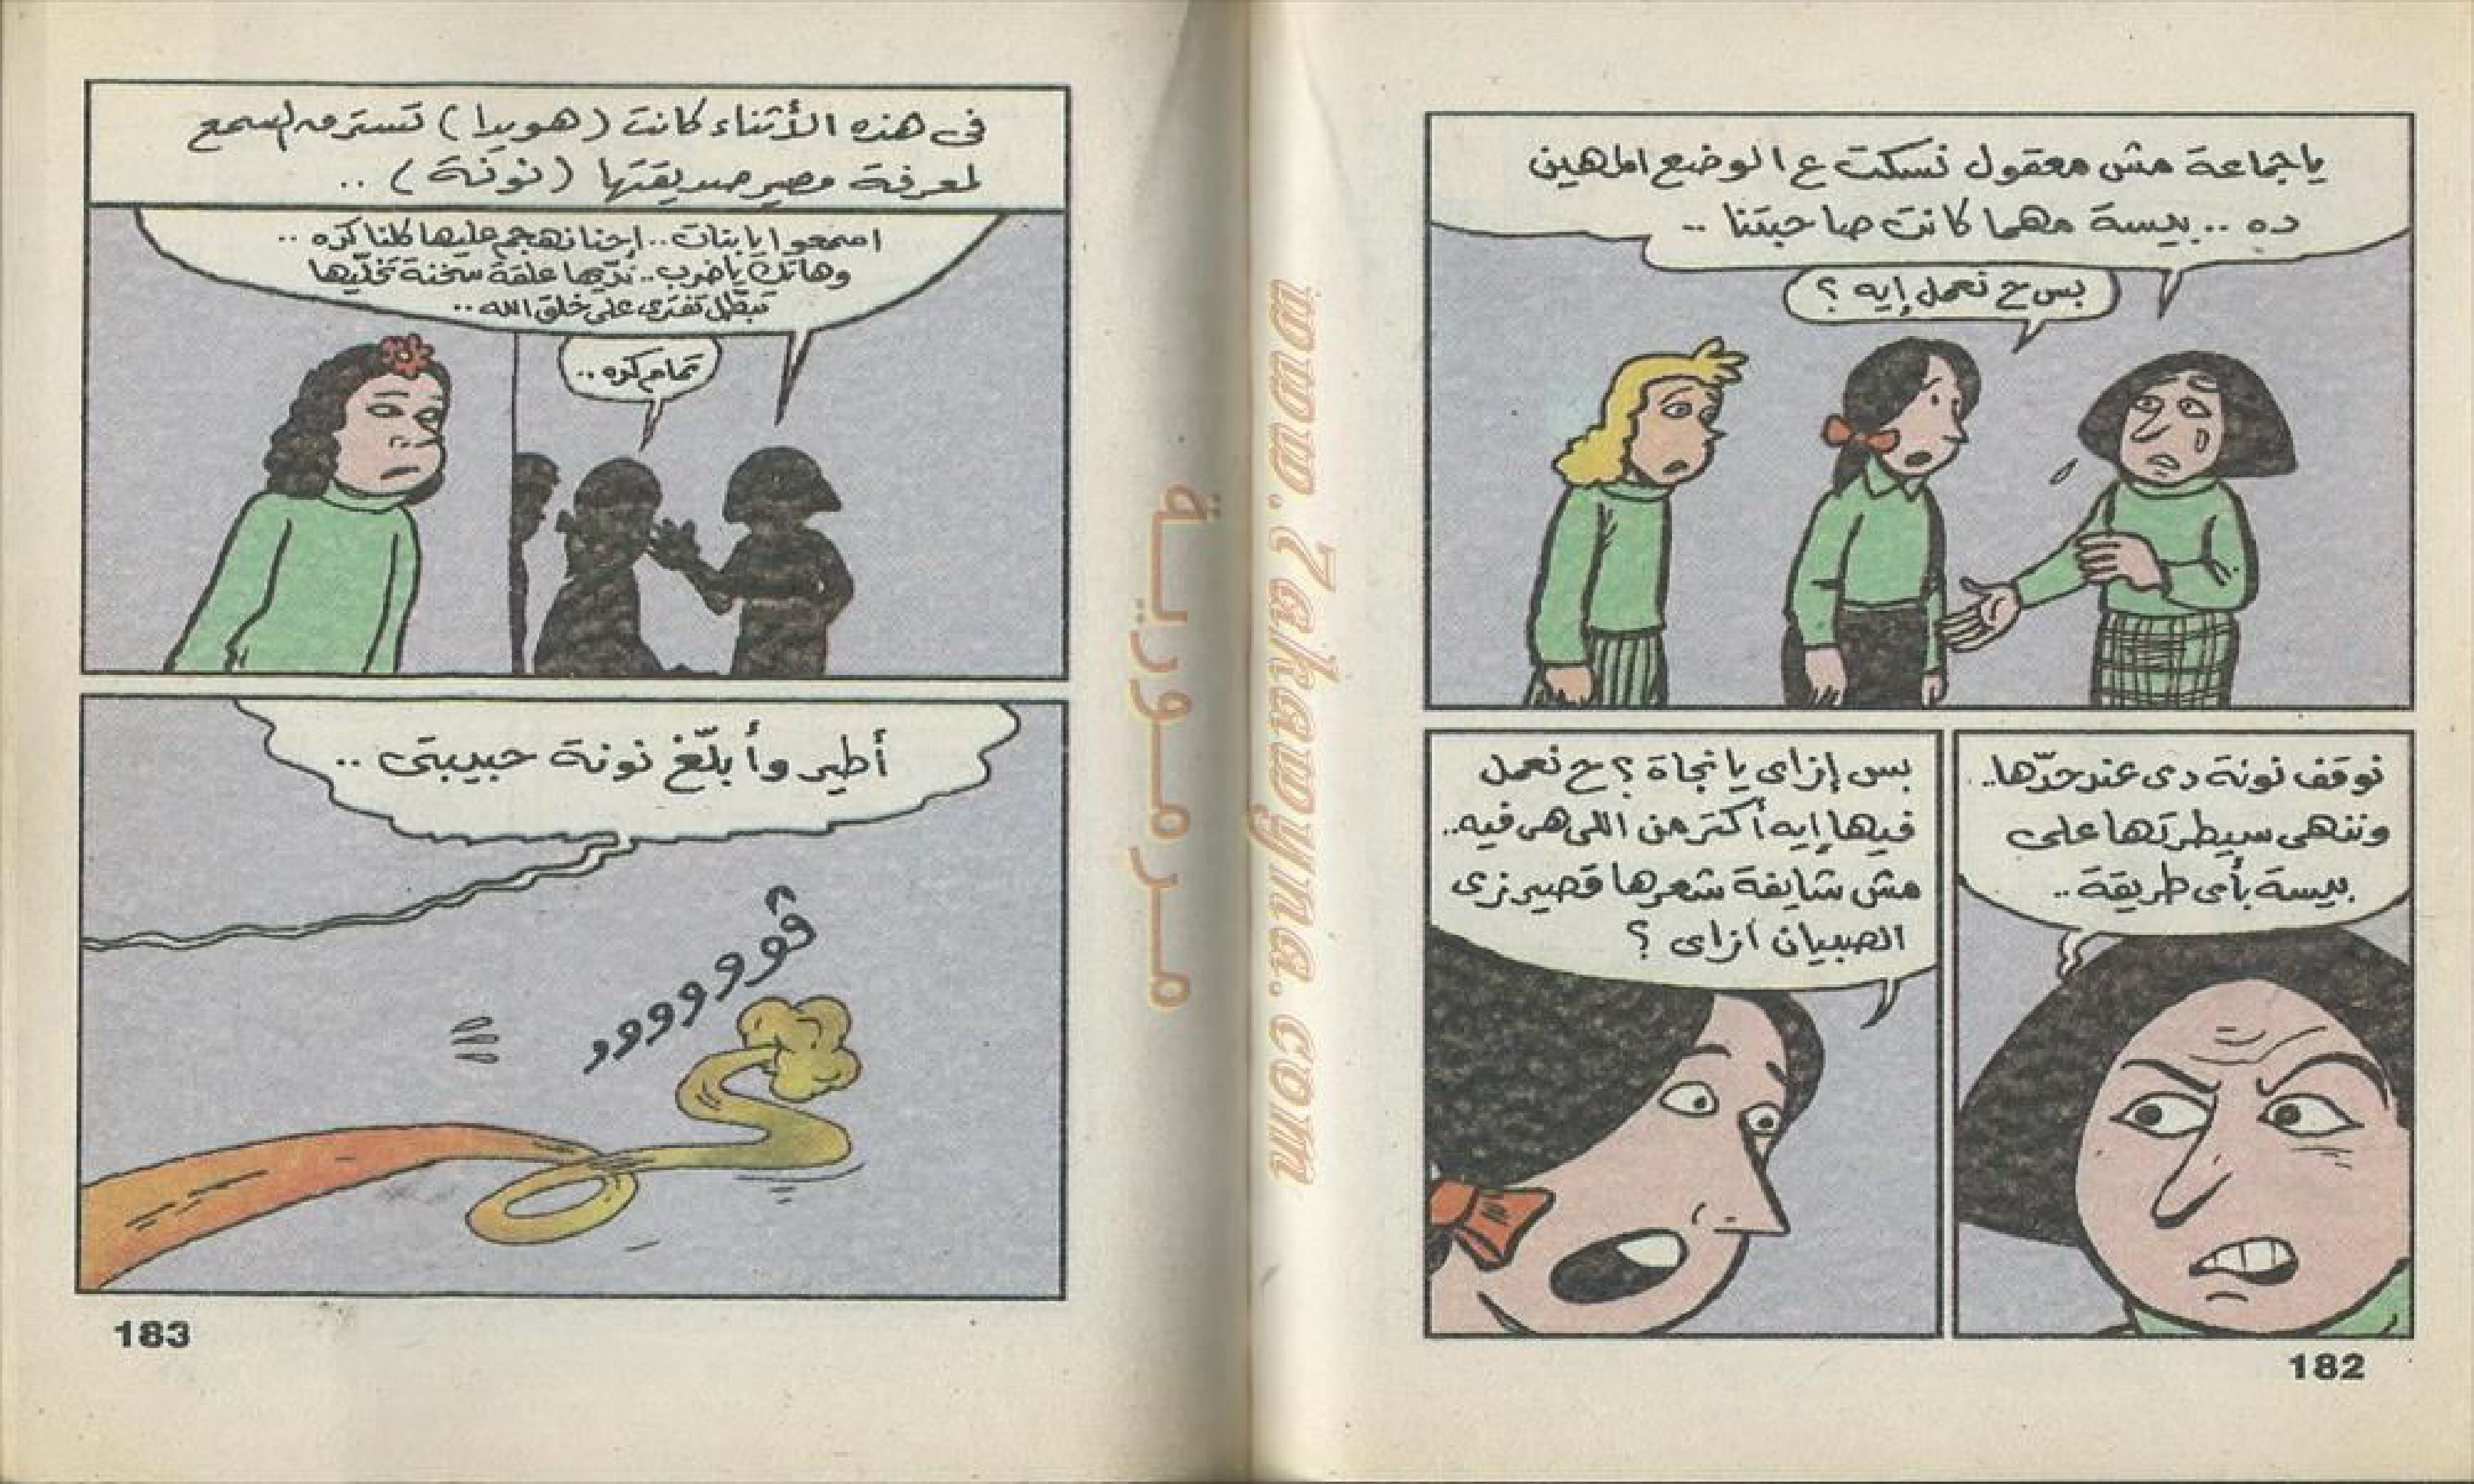 ياجماعة مش معقول نسكت ع الوضع المهين
ده .. بيسة مهما كانت صاحبتنا ..
بس ح نعمل إيه ؟
نوقف نونة دى عند حدّها..
وننهى سيطرتها على
بيسة بأى طريقة..
بس إزاى يا نجاة ؟ ح نعمل
فيها إيه أكتر من اللى هى فيه..
مش شايفة شعرها قصير زى
الصبيان ازاى ؟
182
فى هذه الأثناء كانت (هويدا) تسترق السمع
لمعرفة مصير صديقتها (نونة) ..
اسمعوا يابنات.. إحنا نهجم عليها كلنا كده ..
وهاتك ياضرب.. ندّيها علقة سخنة تخلّيها
تبطّل تفترى على خلق الله..
تمام كده ..
أطير وأبلّغ نونة حبيبتى ..
ڤوووووو
183
مرمورية
www.7akawyna.com